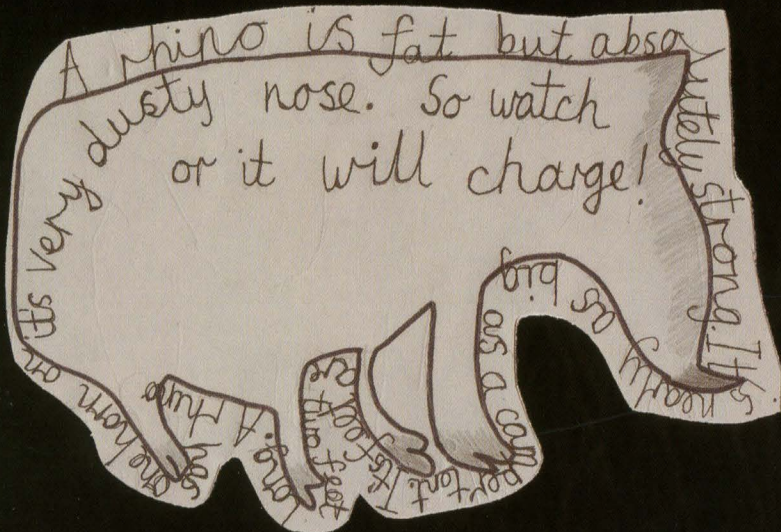 A rhino is fat but absolutely strong. It's nearly as big as a camper tent. Its feet are two feet long. A rhino has one horn on it's very dusty nose. So watch
or it will charge!